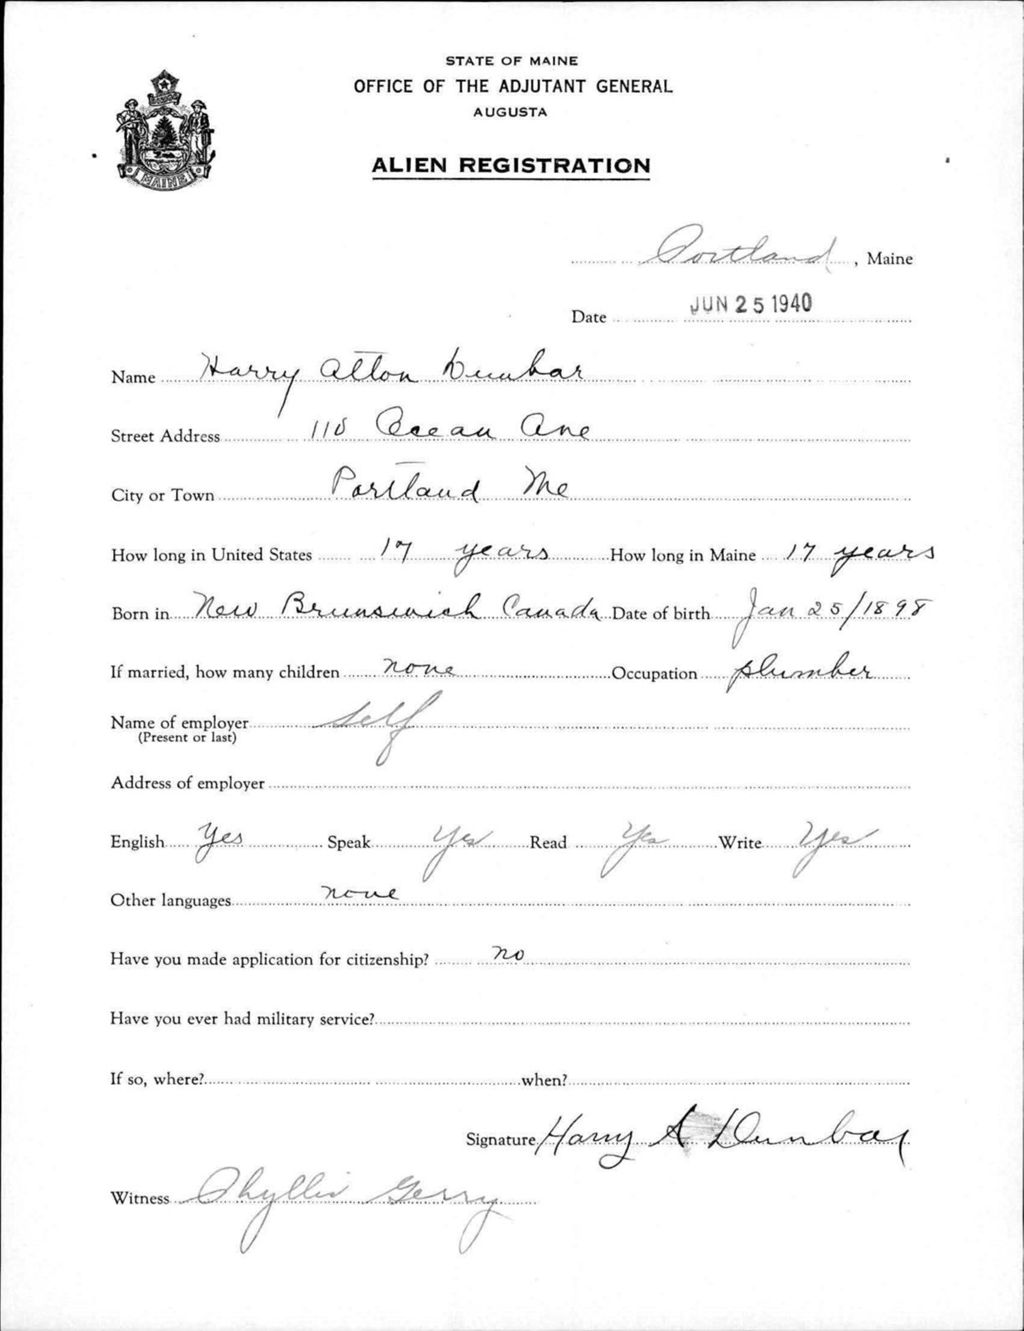 STATE OF MAINE
OFFICE OF THE ADJUTANT GENERAL
AUGUSTA
ALIEN REGISTRATION
MAINE
Portland, Maine
Date JUN 25 1940
Name Harry Atton Dunbar
Street Address Ocean Ave
City or Town Portland Me
How long in United States 17 years How long in Maine 17 years
Born in New Brunswick Canada Date of birth Jan 25/1898
If married, how many children none Occupation plumber
Name of employer Self
(Present or last)
Address of employer
English Yes Speak Yes Read Yes Write Yes
Other languages none
Have you made application for citizenship? no
Have you ever had military service?
If so, where? when?
Signature Harry A Dunbar
Witness Phyllis Gerry